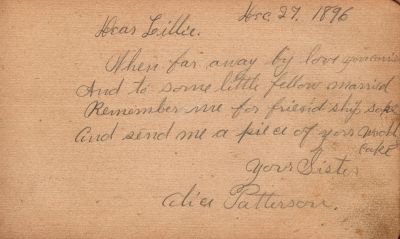 Dec 27. 1896
Dear Lillie.
When far away by love
And to some little fellow married
Remember me for friend ship sake
And send me a piece of your
cake
Your Sister
Alice Patterson.